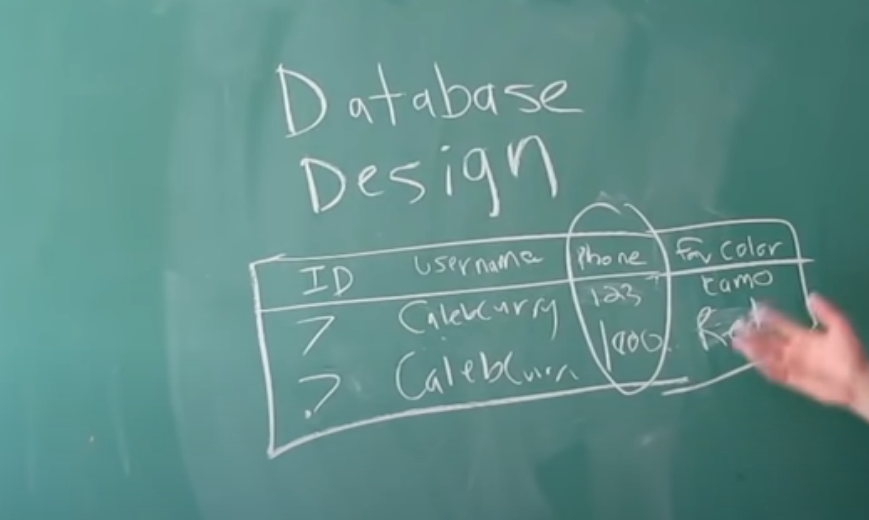 Database
Design
ID username phone fav color
7 Calebcurry 123 camo
? CalebCurry 1000